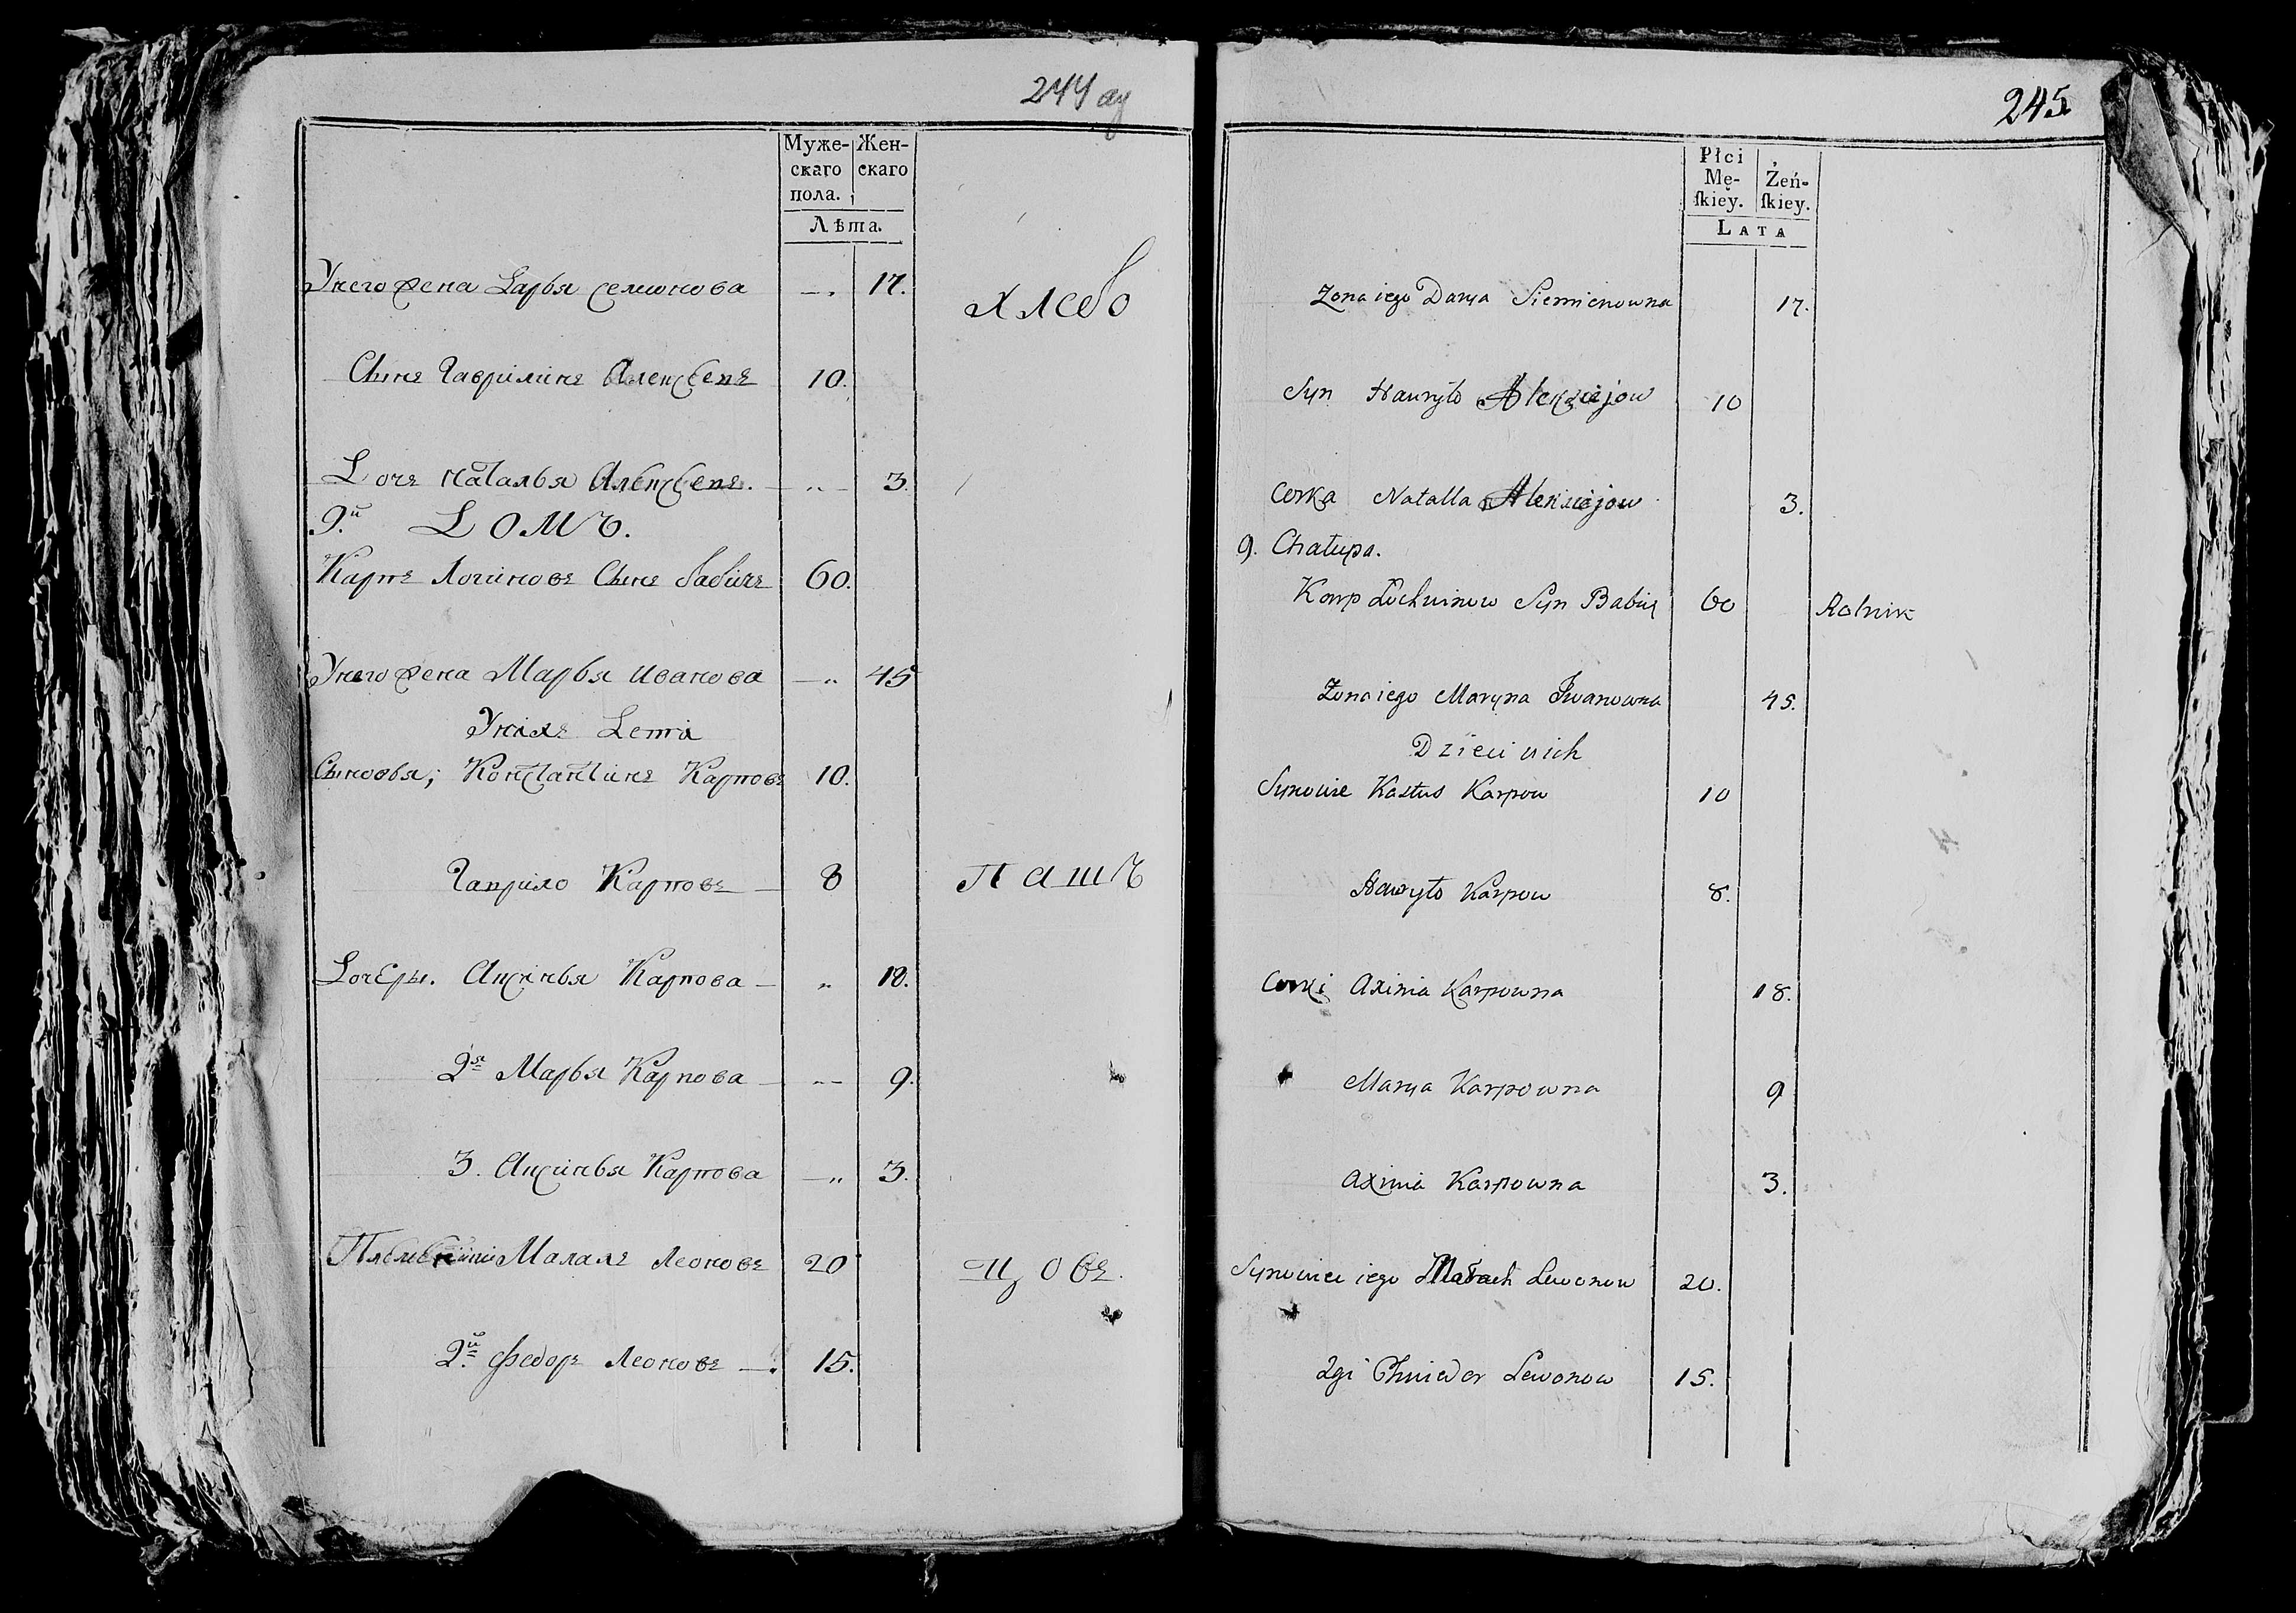 244 ау
Муже-
скаго
пола.
Жен-
скаго
Лѣта.
У него жена Дарья семионова —. 17.
хлебо
Сынъ Гаврилинъ Алексеевъ 10.
Дочь Наталья 3.
9.й ДОМЪ.
Карпъ Логиновъ Сынъ бабичъ 60.
У него жена Марья иванова —„ 45
У нихъ Дети
Сыновья; Константинъ Карповъ 10.
Гаврило Карповъ — 8
пашъ
Дочеры. Аксинья Карпова — „ 18.
2я Марья Карпова — 9.
3. Аксинья Карпова —„ 3.
Малахъ Леоновъ 20
цовъ.
2.й Федоръ Леоновъ —. 15.
245
Płci
Mę-
ſkiey.
Żeń-
ſkiey.
LATA
Zona iego Darya Siemienowna 17.
Syn Hawryło Alexiejow 10
Corka Natalla Alexiejow 3.
9. Chałupa.
Karp Łochwinow Syn Babicz 60 Rolnik
Zona iego Maryna Iwanowna 45.
Dzieci u ich
Synowie Kastus Karpow 10
Hawryło Karpow 8.
Corki Axinia Karpowna 18.
Marya Karpowna 9
Axinia Karpowna 3.
Synowiec iego Małach Lewonow 20.
2gi Chwiedor Lewonow 15.